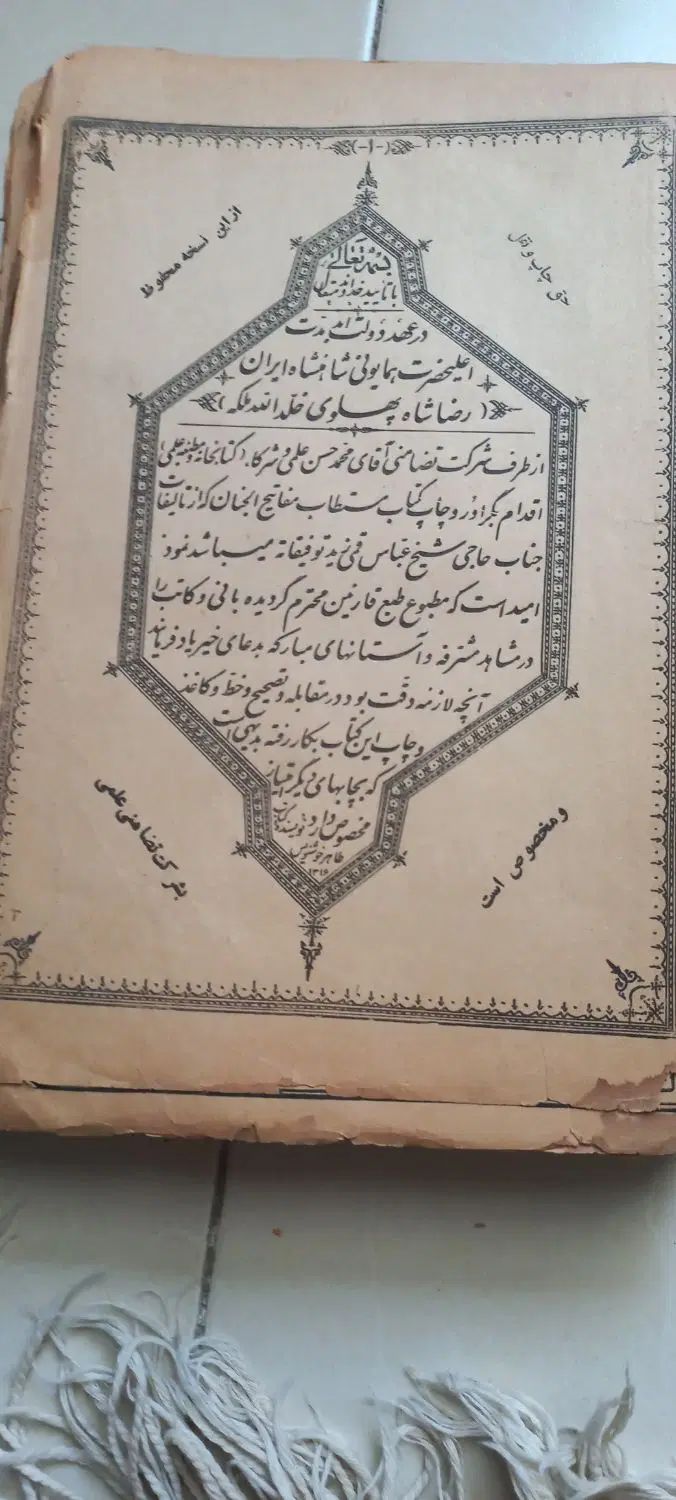 -۱-
حق چاپ و نقل
از این نسخه محفوظ
بسمه تعالی
با تأیید خداوند
در عهد دولت ابدمدت
اعلیحضرت همایونی شاهنشاه ایران
(رضا شاه پهلوی خلد الله ملکه)
از طرف شرکت تضامنی آقای محمد حسن علمی و شرکاء (کتابخانه و مطبعه علمی)
اقدام بگراور و چاپ کتاب مستطاب مفاتیح الجنان که از تألیفات
جناب حاجی شیخ عباس قمی زید توفیقاته میباشد نمود
امید است که مطبوع طبع قارئین محترم گردیده بانی و کاتب را
در مشاهد مشرفه و آستانهای مبارکه بدعای خیر یاد فرمایند
آنچه لازمه دقت بود در مقابله و تصحیح و خط و کاغذ
و چاپ این کتاب بکار رفته بدیهی است
که بچاپهای دیگر امتیاز
مخصوص دارد نویسنده کتاب
طاهر خوشنویس
۱۳۱۶
و مخصوص است
بشرکت تضامنی علمی